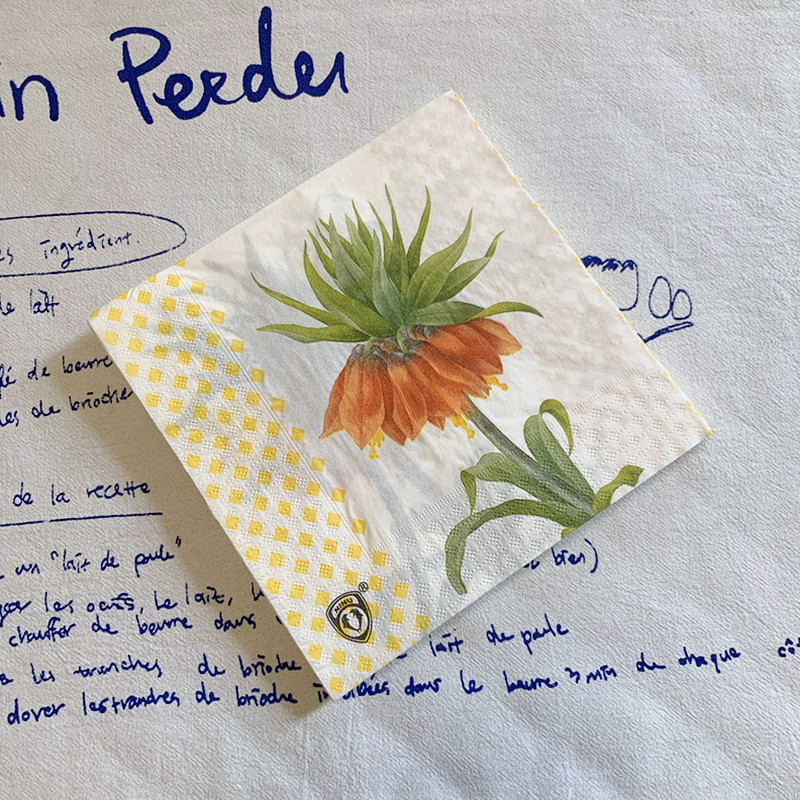 in Perdu
es ingrédient.
de lait
fé de beurre
hes de brioche
de la recette
un "lait de poule"
bien)
les oeufs, le lait,
chauffer de beurre dans
les tranches de brioche lait de poule
dorer les tranches de brioche dans le beurre 3 min de chaque cô
MINU
®